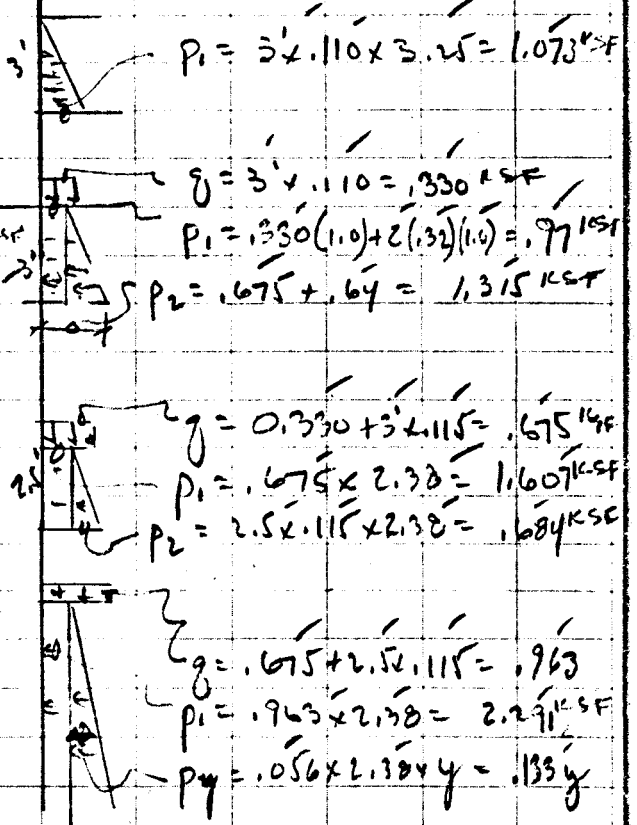 3' P₁ = 3' x .110 x 3.25 = 1.073 KSF
q = 3' x .110 = .330 KSF
P₁ = .330(1.0) + 2(.32)(1.0) = .97 KSF
3' P₂ = .675 + .64 = 1.315 KSF
q = 0.330 + 3' x .115 = .675 KSF
2.5' P₁ = .675 x 2.38 = 1.607 KSF
P₂ = 2.5 x .115 x 2.38 = .684 KSF
q = .675 + 2.5 x .115 = .963
P₁ = .963 x 2.38 = 2.291 KSF
Py = .056 x 2.38 x y = .133y